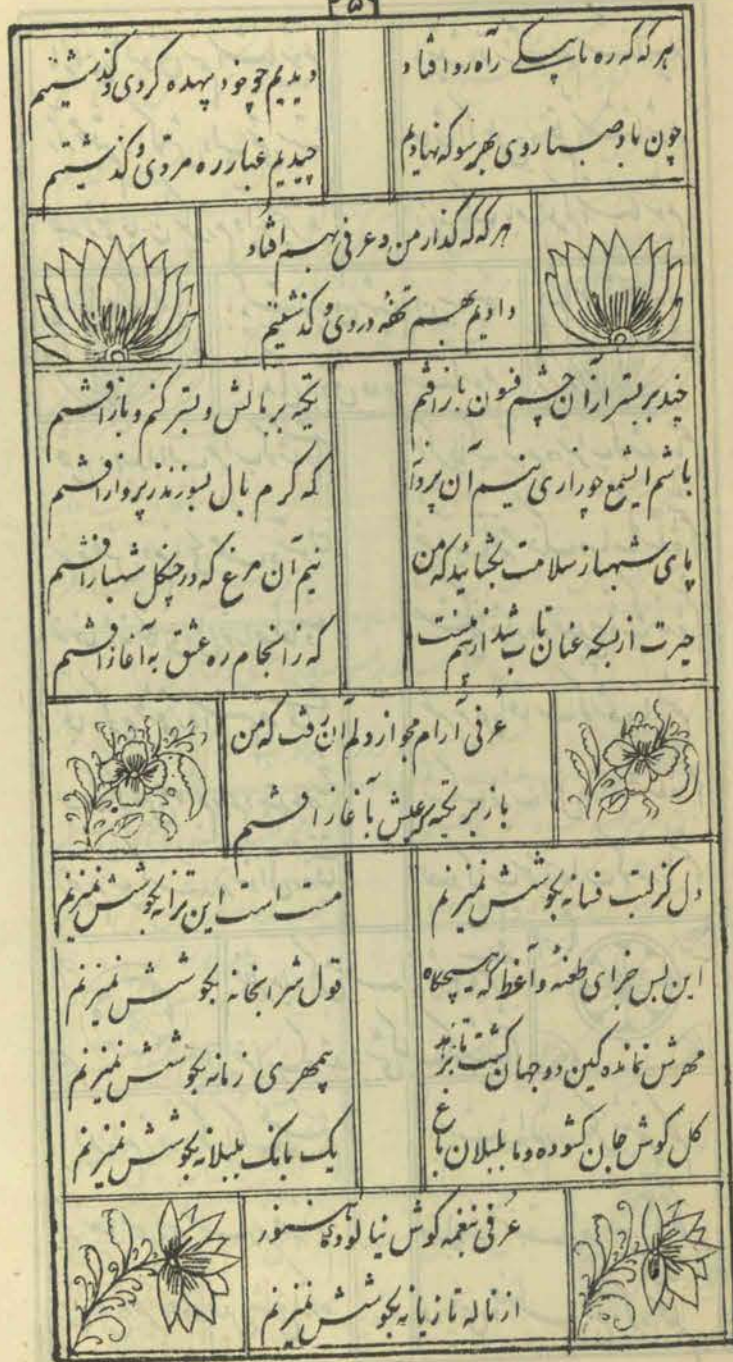 ۵
هر که که ره ما بیکی راه رو افتاد
دیدیم چو خود بیهده کردی و گذشتیم
چون باد صبا روی بهر سو که نهادیم
چیدیم غبار ره مردی و گذشتیم
هر که که گذار من و عرفی بهم افتاد
دادیم بهم تحفه دردی و گذشتیم
چند بر بستر از آن چشم فسون باز افتم
تکیه بر بالش و بستر کنم و باز افتم
باشم ایشمع چو زاری نیم آن پروانه
که کرم بال بسوزند ز پرواز افتم
پای شهباز سلامت بگشائید که من
نیم آن مرغ که در چنگل شهباز افتم
حیرت از بسکه عنان تاب شد از
که ز انجام ره عشق به آغاز افتم
عرفی آرام مجو از دلم آن رفت که من
باز بر تکیه عیش باغاز افتم
دل کز لبت فسانه بگوشش نمیزنم
مست است این ترانه بگوشش نمیزنم
این بس جزای طعنه واعظ که هیچگاه
قول شرابخانه بگوشش نمیزنم
مهرش نمانده کین دو جهان گشت
بیمهری زمانه بگوشش نمیزنم
کل کوش جان کشوده و ما بلبلان باغ
یک بانک بلبلانه بگوشش نمیزنم
عرفی بنغمه کوش نیالوده هنوز
از ناله تازیانه بگوشش نمیزنم